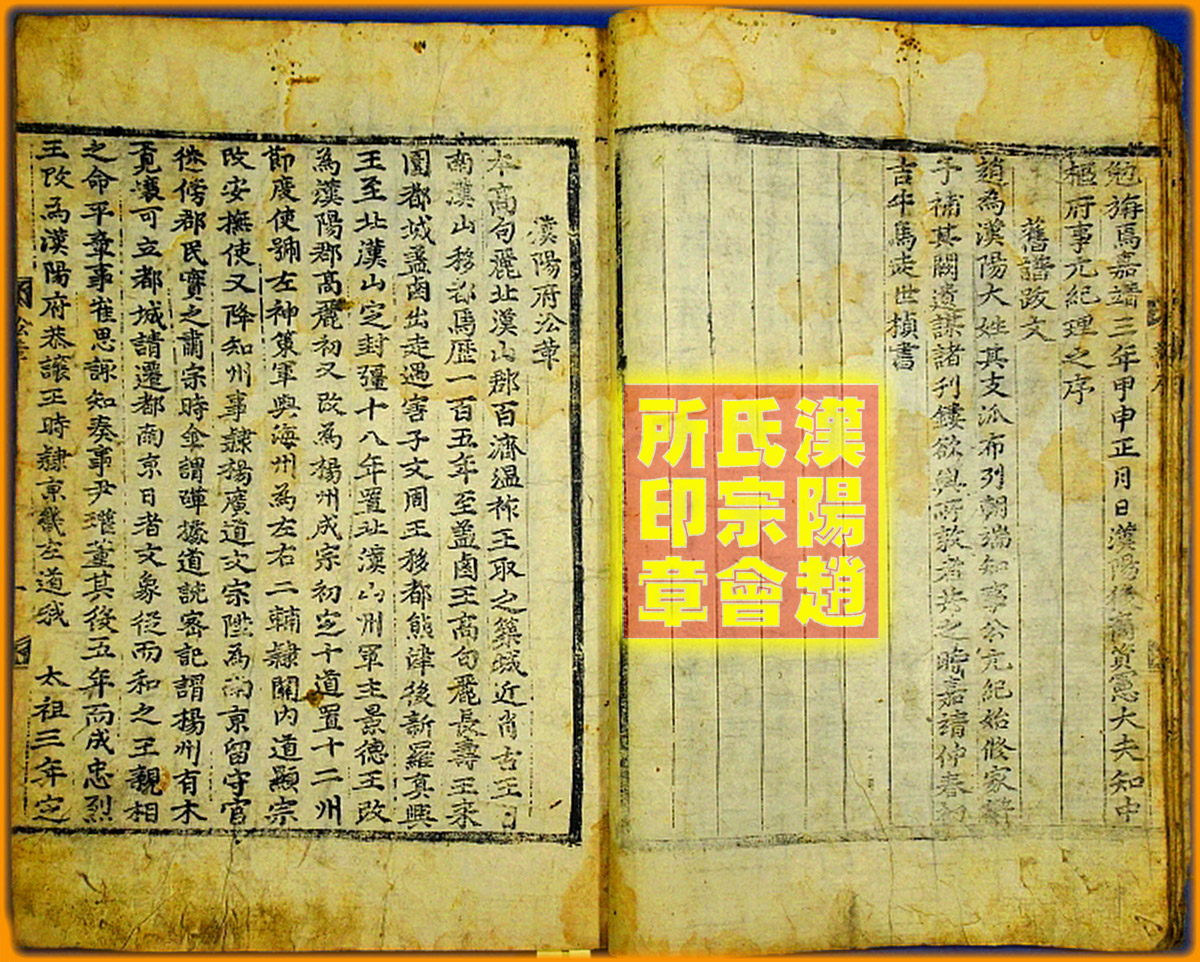 勉旃焉嘉靖三年甲申正月日漢陽後裔資憲大夫知中
樞府事元紀理之序
舊譜跋文
趙為漢陽大姓其支派布列朝端知事公元紀始修家諜
予補其闕遺謀諸刊鏤欲與所敦者共之時嘉靖仲春初
吉牛馬走世楨書
漢陽趙
氏宗會
所印章
漢陽府沿革
本高句麗北漢山郡百濟溫祚王取之築城近肖古王自
南漢山移都焉歷一百五年至盖鹵王高句麗長壽王來
圍都城盖鹵出走遇害子文周王移都熊津後新羅真興
王至北漢山定封疆十八年置北漢山州軍主景德王改
為漢陽郡高麗初又改為楊州成宗初定十道置十二州
節度使號左神策軍與海州為左右二輔隸關內道顯宗
改安撫使又降知州事隸楊廣道文宗陞為南京留守官
徙傍郡民實之肅宗時金謂磾據道詵密記謂楊州有木
覓壤可立都城請遷都南京日者文象從而和之王親相
之命平章事崔思諏知奏事尹瓘董其後五年而成忠烈
王改為漢陽府恭讓王時隸京畿左道我 太祖三年定